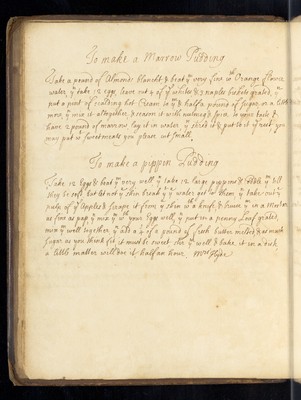 To make a Marrow Pudding
Take a pound of Almonds blancht & beat ym very fine wth Orange flower
water, yn take 12 eggs leave out 4 of ye whites & 3 naples biskets grated, yn
put a pint of scalding hot Cream to ym & half a pound of sugar, in a little
mix ym altogether, & season it with nutmegs
have 2 pound of marrow lay it in water & put to it
may put in sweetmeats you please cut small.
To make a pippin Pudding
Take 12 Eggs & beat ym very well yn take 12 large pippins & Coddle ym till
they be soft but do not let ye skin break yt ye water get in them, yn take out ye
pulp of ye Apples & scrape it from ye skin wth a knife, & bruise ym in a Morter
as fine as pap yn mix ym wth your Eggs well, yn put in a penny Loaf grated,
mix ym well together yn add a of a pound of fresh butter melted & as much
sugar as you think fit it must be sweet, stir ym well & bake it in a dish
a little matter will doe it half an hour. Mrs